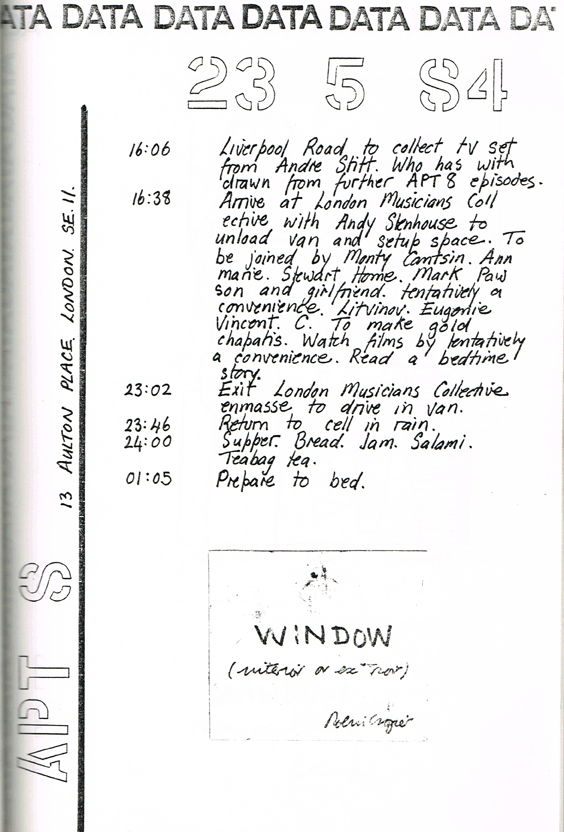 DATA DATA DATA DATA DATA DATA
23 5 84
16:06 Liverpool Road to collect tv set
from Andre Stitt. Who has with
drawn from further APT 8 episodes.
16:38 Arrive at London Musicians Coll
ective with Andy Stenhouse to
unload van and setup space. To
be joined by Monty Cantsin. Ann
marie. Stewart Home. Mark Paw
son and girlfriend. tentatively a
convenience. Litvinov. Eugenie
Vincent. C. To make gold
chapatis. Watch films by tentatively
a convenience. Read a bedtime
story.
23:02 Exit London Musicians Collective
enmasse to drive in van.
23:46 Return to cell in rain.
24:00 Supper. Bread. Jam. Salami.
Teabag tea.
01:05 Prepare to bed.
WINDOW
(interior or
13 AULTON PLACE, LONDON. SE.11.
APT 8